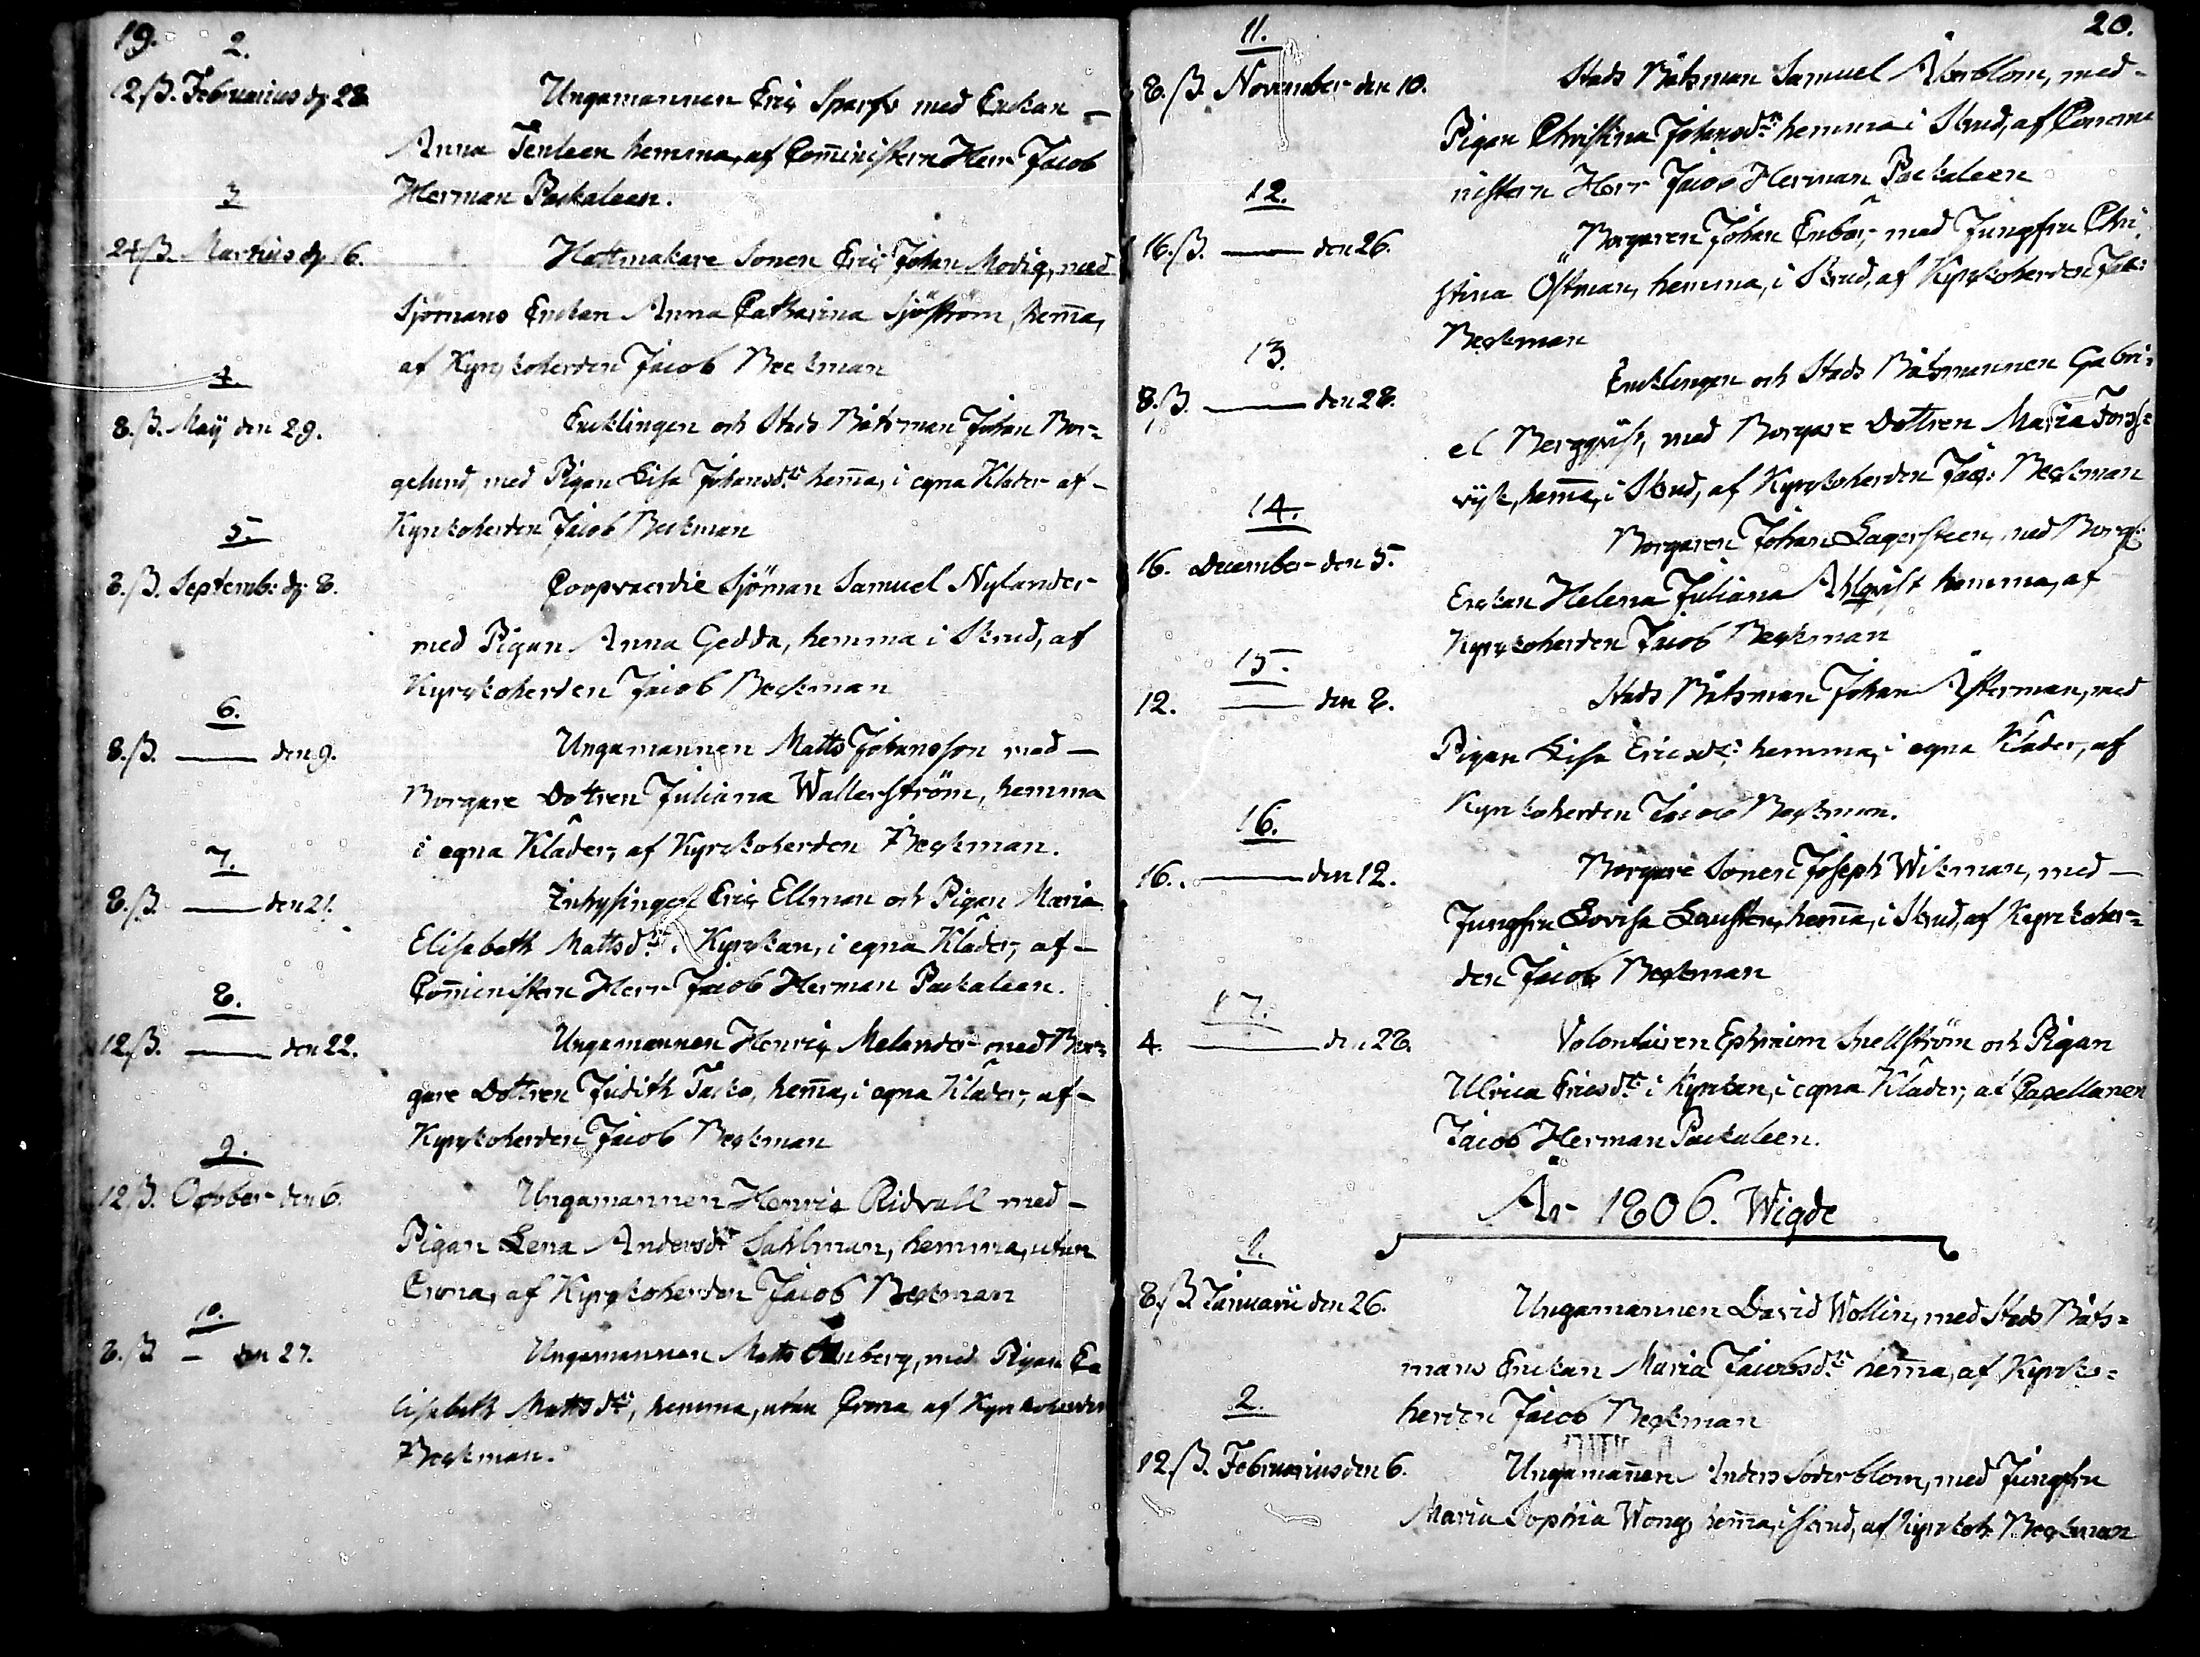 19.
2.
12 ß. Februarius d. 28.
Ungamannen Eric Sparfv med Enckan
Anna Tenleen hemma, af Com̅inistern Herr Jacob
Herman Packaleen.
3
24 ß. Martius d. 16.
Hattmakare Sonen Eric Johan Modig, med
Sjömans Enckan Anna Catharina Sjöström, hem̅a,
af Kyrckoherden Jacob Beckman
4.
8. ß. Maÿ den 29.
Encklingen och Stads Båtsman Johan Bor=
gelund, med Pigan Lisa Johansdr hem̅a, i egna Kläder af
Kyrckoherden Jacob Beckman
5.
8. ß. Septemb: d. 8.
Coopvaerdie Sjöman Samuel Nylander
med Pigan Anna Gedda, hemma i Skrud, af
Kyrckoherden Jacob Beckman
6.
8. ß. — den 9.
Ungamannen Matts Johansson med —
Borgare Dottren Juliana Wallerström, hemma
i egna Kläder, af Kyrckoherden Beckman.
7.
8. ß. — den 21.
Inhysingen Eric Ellman och Pigan Maria
Elisabeth Mattsdr i Kyrckan, i egna Kläder, af —
Com̅inistern Herr Jacob Herman Packaleen.
8.
12 ß. — den 22.
Ungamannen Henric Melander med Bor=
gare Dottren Judith Tacko, hem̅a, i egna Kläder, af —
Kyrckoherden Jacob Beckman
9.
12 ß. October den 6.
Ungamannen Henric Ridvall med —
Pigan Lena Andersdr Sahlman, hemma, utan
Crona, af Kyrckoherden Jacob Beckman
10.
8. ß — den 27.
Ungamannen Matts Enberg, med Pigan E
lisabeth Mattsdr, hemma, utan Crona af Kyrckoherden
Beckman.
20.
11.
8. ß. November den 10.
Stads Båtsman Samuel Åkerblom, med
Pigan Christina Johansdr hemma i Skrud, af Comme
nistern Herr Jacob Herman Packaleen
12.
16. ß. — den 26.
Borgaren Johan Enbår, med Jungfru Chri
stina Östman, hemma, i Skrud, af Kyrckoherden Jac:
Beckman
13.
8. ß. — den 28.
Encklingen och Stads Båtsmannen Gabri=
el Bergqvist, med Borgare Dottren Maria Fors=
ryk, hem̅a, i Skrud, af Kyrckoherden Jac: Beckman
14.
16. December den 5.
Borgaren Johan Lagersteen, med Borg:
Enckan Helena Juliana Ahlqvist hemma, af
Kyrckoherden Jacob Beckman
15.
12. — den 8.
Stads Båtsman Johan Åkerman, med
Pigan Lisa Ericsdr: hemma, i egna Kläder, af
Kyrckoherden Jacob Beckman.
16.
16. — den 12.
Borgare Sonen Joseph Wikman, med —
Jungfru Lovisa Lausten, hem̅a, i Skrud, af Kyrckoher=
den Jacob Beckman
17.
4. — den 28.
Volontairen Ephraim Snellström och Pigan
Ulrica Ericsdr i Kyrckan, i egna Kläder, af Capellanen
Jacob Herman Packaleen.
År 1806. Wigde
1.
8. ß Januarii den 26.
Ungamannen David Wollin, med Stads Båts=
mans Enckan Maria Jacobsdr hem̅a, af Kyrcko=
herden Jacob Beckman
2.
12. ß. Februarius den 6.
Ungaman̅en Anders Söderblom, med Jungfru
Maria Sophia Wong, hem̅a, i skrud, af Kyrckoh. Beckman